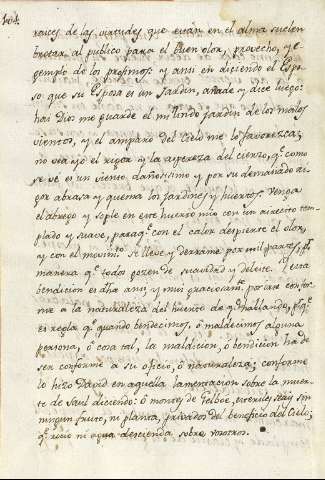 104.
raices de las virtudes que están en el alma suelen
brotar al publico para el buen olor, provecho, y e-
gemplo de los proximos; y ansi en diciendo el Espo-
so que su Esposa es un Jardin, añade y dice luego:
hai Dios me guarde el mi lindo jardin de los malos
vientos, y el amparo del Cielo me lo favorezca;
no vea yo el rigor y la aspereza del cierzo, q.e como
se vé es un viento dañosissimo y por su demasiado ri-
gor abrasa y quema los jardines y huertos. Venga
el abrego y sople en este huerto mio con un airecito tem-
plado y suave, para q.e con el calor despierte el olor,
y con el movim.to se lleve y derrame por mil partes, de
manera q.e todo gozen de suavidad y deleite. Y esta
bendicion es dha ansi y mui graciosam.te por irse confor-
me a la naturaleza del huerto de q.e habla
es regla q.e quando bendecimos, ó maldecimos alguna
persona, ó cosa tal, la maldicion, ó bendicion ha de
ser conforme a su oficio, ó naturaleza; conforme
lo hizo David en aquella lamentacion sobre la muer-
te de Saul diciendo: ó montes de Gelboe, esteriles seáis sin
ningun fruto, ni planta, privados del beneficio del Cielo;
q.e rocio ni agua descienda sobre vosotros.